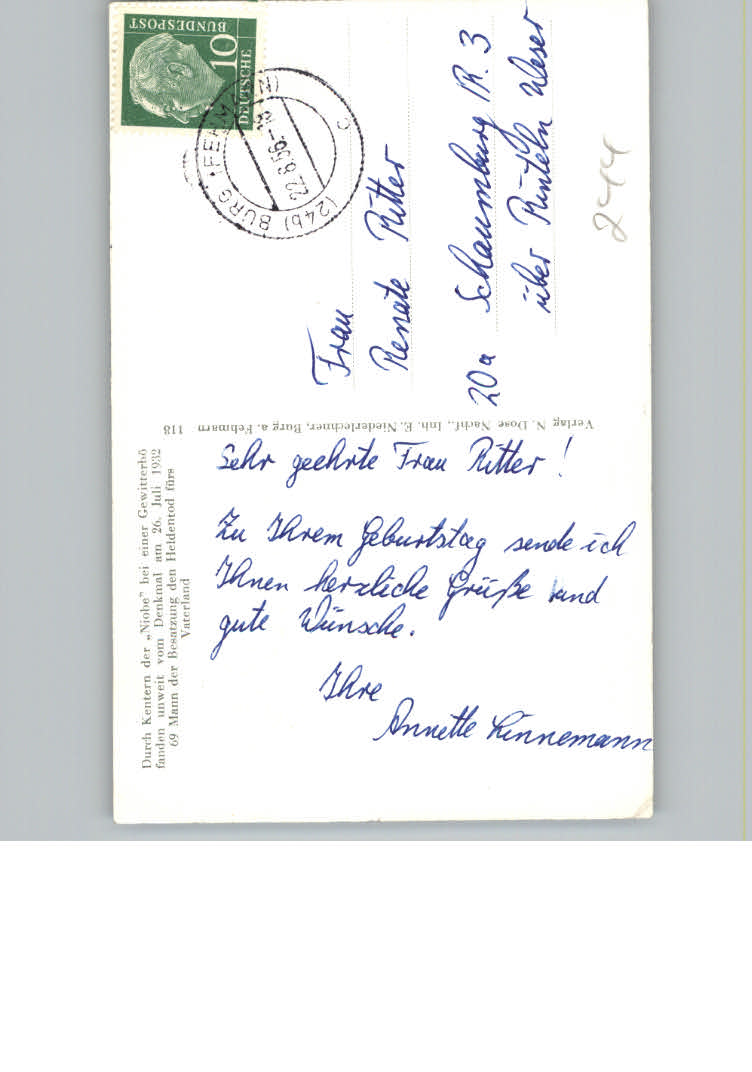 Durch Kentern der „Niobe" bei einer Gewitterbö
fanden unweit vom Denkmal am 26. Juli 1932
69 Mann der Besatzung den Heldentod fürs
Vaterland
Sehr geehrte Frau Ritter!
Zu Ihrem Geburtstag sende ich
Ihnen herzliche Grüße und
gute Wünsche.
Ihre
Annette Linnemann
118 Verlag N. Dose Nachf., Inh. E. Niederlechner, Burg a. Fehmarn
Frau
Renate Ritter
20a Schaumburg Kr. 3
über Rinteln Weser
DEUTSCHE
BUNDESPOST
10
(24b) BURG (FEHMARN)
22.8.56
c
2444